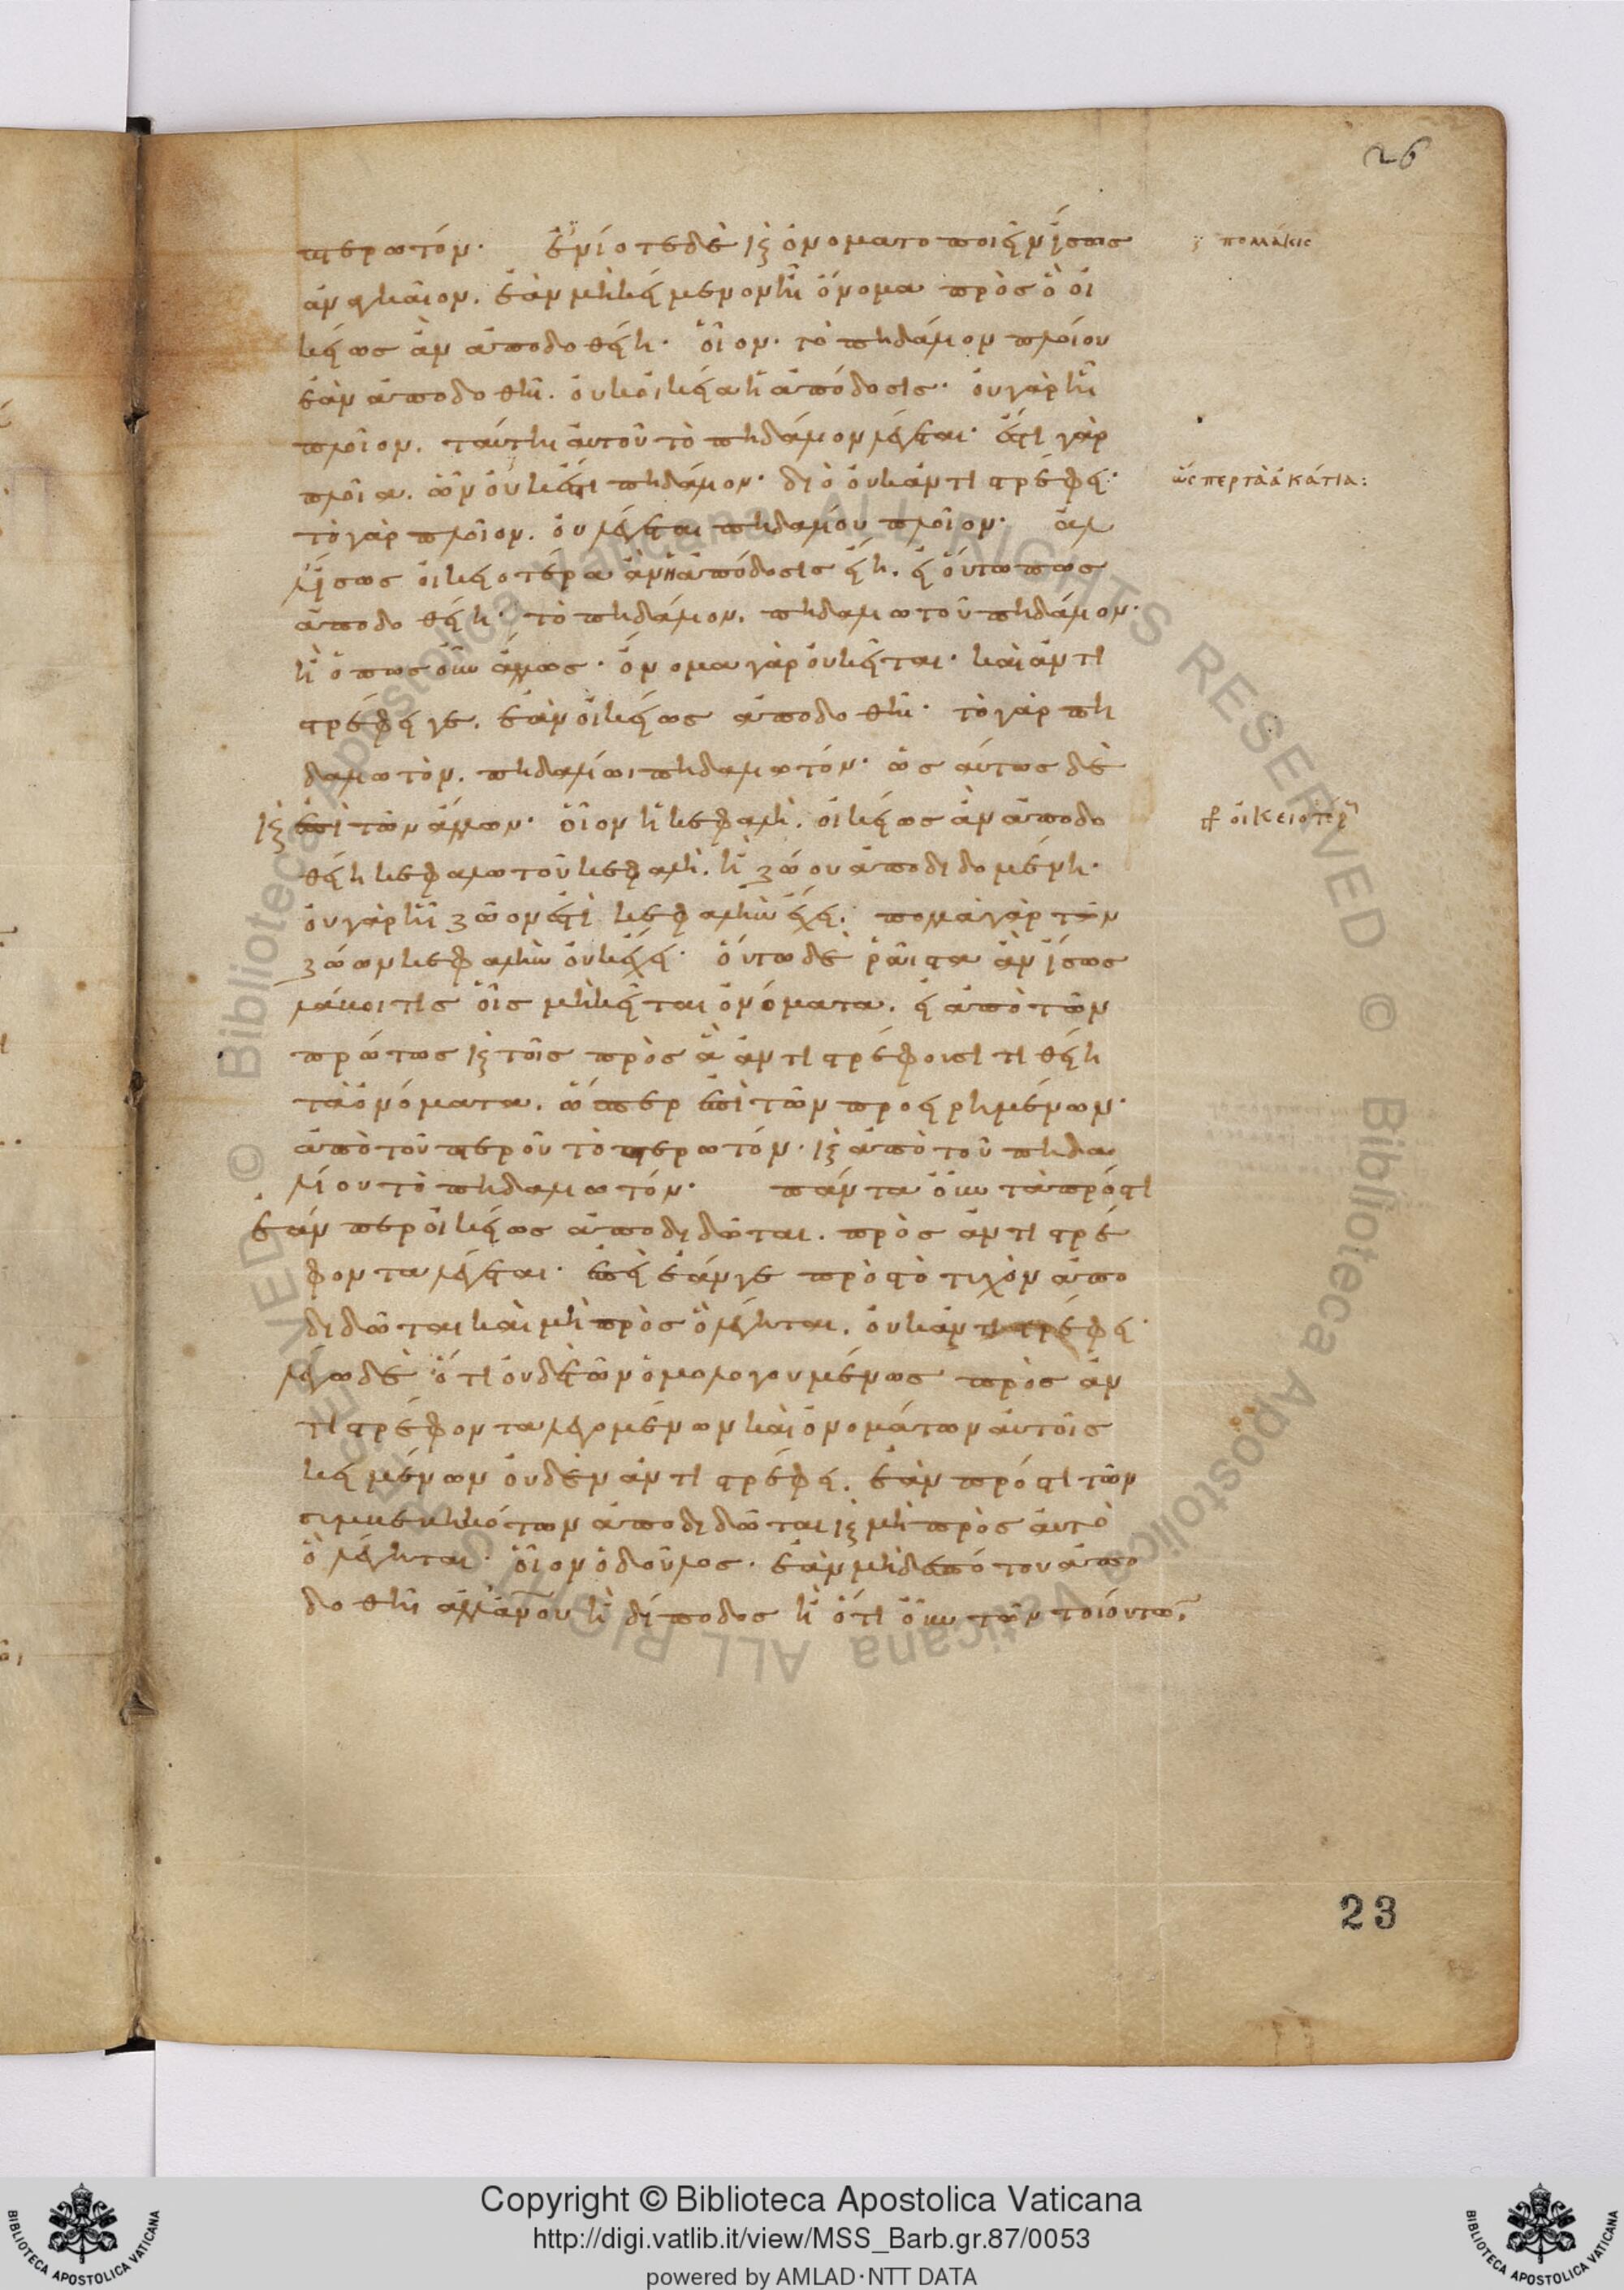 26
πτερωτόν. ἐνίοτε δὲ κ(αὶ) ὀνοματοποιεῖν ἴσως
πολλάκις
ἀναγκαῖον. ἐὰν μὴ κείμενον ἦι ὄνομα πρὸς ὃ οἰ
κείως ἂν ἀποδοθείη. οἷον. τὸ πηδάλιον πλοίου
ἐὰν ἀποδοθῆι. οὐκ οἰκεία ἡ ἀπόδοσις. οὐ γὰρ ἧι
πλοῖον. ταύτηι αὐτοῦ τὸ πηδάλιον λέγεται. ἔστι γὰρ
πλοῖα. ὧν οὐκ ἔστι πηδάλιον. διὸ οὐκ ἀντιστρέφει.
ὥσπερ τὰ ἀκάτια:
τὸ γὰρ πλοῖον. οὐ λέγεται πηδαλίου πλοῖον. ἀλ
λ' ἴσως οἰκειοτέρα ἂν ἡ ἀπόδοσις εἴη. εἰ οὕτω πως
ἀποδοθείη. τὸ πηδάλιον. πηδαλιωτοῦ πηδάλιον.
ἢ ὅπως οὖν ἄλλως. ὄνομα γὰρ οὐ κεῖται. καὶ ἀντι
στρέφει γε. ἐὰν οἰκείως ἀποδοθῆι. τὸ γὰρ πη
δαλιωτὸν. πηδαλίωι πηδαλιωτόν. ὡσαύτως δὲ
κ(αὶ) ἐπὶ τῶν ἄλλων. οἷον ἡ κεφαλὴ. οἰκείως ἂν ἀποδο
οἰκειοτέρ
θείη κεφαλωτοῦ κεφαλὴ. ἢ ζώου ἀποδιδομένη.
οὐ γὰρ ἧι ζῶον ἐστὶ κεφαλὴν ἔχει. πολλὰ γὰρ τῶν
ζώων κεφαλὴν οὐκ ἔχει. οὕτω δὲ ῥᾶιστα ἂν ἴσως
λάβοι τις οἷς μὴ κεῖται ὀνόματα. εἰ ἀπὸ τῶν
πρώτως κ(αὶ) τοῖς πρὸς ἃ ἀντιστρέφουσι τιθείη
τὰ ὀνόματα. ὥσπερ ἐπὶ τῶν προειρημένων.
ἀπὸ τοῦ πτεροῦ τὸ πτερωτόν. κ(αὶ) ἀπὸ τοῦ πηδα
λίου τὸ πηδαλιωτόν. πάντα οὖν τὰ πρός τι
ἐάν περ οἰκείως ἀποδιδῶται. πρὸς ἀντιστρέ
φοντα λέγεται. ἐπεὶ ἐάν γε πρὸς τὸ τυχὸν ἀπο
διδῶται καὶ μὴ πρὸς ὃ λέγηται. οὐκ ἀντιστρέφει.
λέγω δὲ ὅτι οὐδὲ τῶν ὁμολογουμένως πρὸς ἀν
τιστρέφοντα λεγομένων καὶ ὀνομάτων αὐτοῖς
κειμένων οὐδὲν ἀντιστρέφει. ἐὰν πρός τι τῶν
συμβεβηκότων ἀποδιδῶται κ(αὶ) μὴ πρὸς αὐτὸ
ὃ λέγηται. οἷον ὁ δοῦλος. ἐὰν μὴ δεσπότου ἀπο
δοθῆι ἀλλ' ἀν(θρώπ)ου ἢ δίποδος ἢ ὅτι οὖν τῶν τοιούτω(ν).
23
Copyright © Biblioteca Apostolica Vaticana
http://digi.vatlib.it/view/MSS_Barb.gr.87/0053
powered by AMLAD·NTT DATA
BIBLIOTECA APOSTOLICA VATICANA
BIBLIOTECA APOSTOLICA VATICANA
© Biblioteca Apostolica Vaticana ALL RIGHTS RESERVED
© Biblioteca Apostolica Vaticana ALL RIGHTS RESERVED